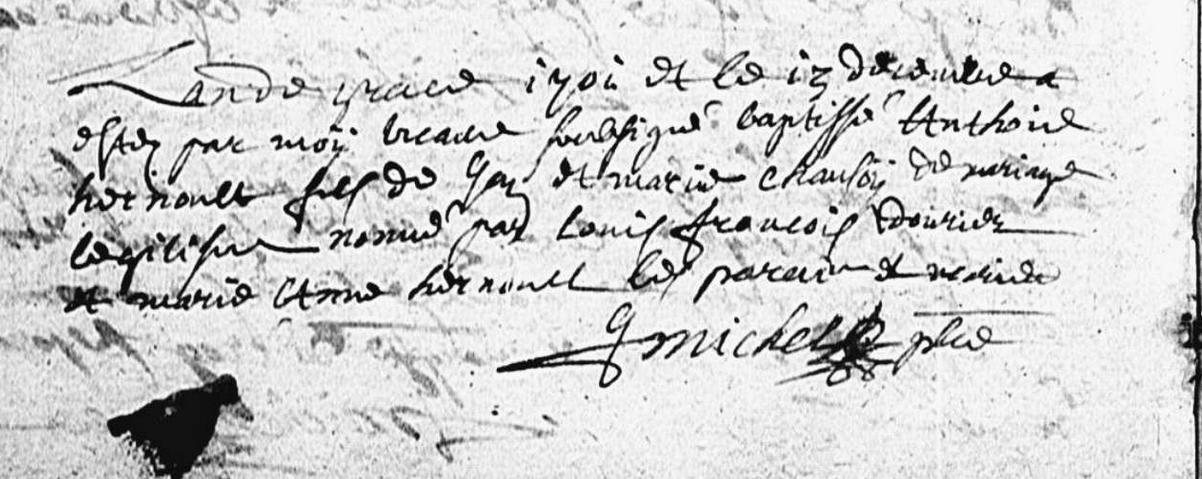 Lan de grace 1701 et le 13 decembre a
estez par moÿ vicaire soubsigné baptissé Anthoine
hernoult fils de et marie de mariage
legitisme nommé par Louis francois
et marie Anne hernoult les parain et
michel pbre